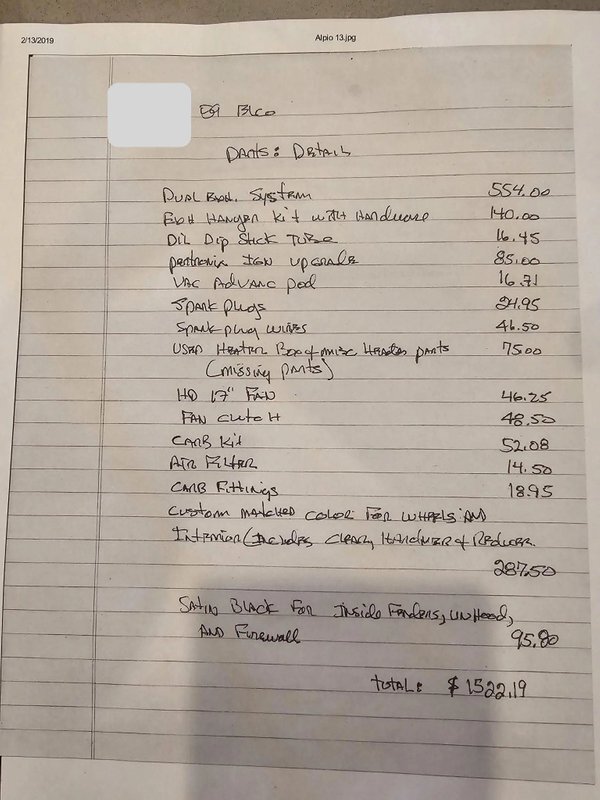 2/13/2019
Alpio 13.jpg
Parts: Detail
Dual Exh. System 554.00
Exh Hanger Kit with Hardware 140.00
Oil Dip Stick Tube 16.45
pertronix IGN upgrade 85.00
VAC Advanc pod 16.71
Spark plugs 24.95
Spark plug wires 46.50
Used Heater Box & misc Heater parts 7500
(missing parts)
HD 17" FAN 46.25
FAN clutch 48.50
CARB Kit 52.08
AIR Filter 14.50
CARB Fittings 18.95
Custom matched color for wheels AND
Interior (Includes Clear, Hardner & Reducer
287.50
Satin Black For Inside Fenders, unHood,
AND Firewall 95.80
Total: $1522.19